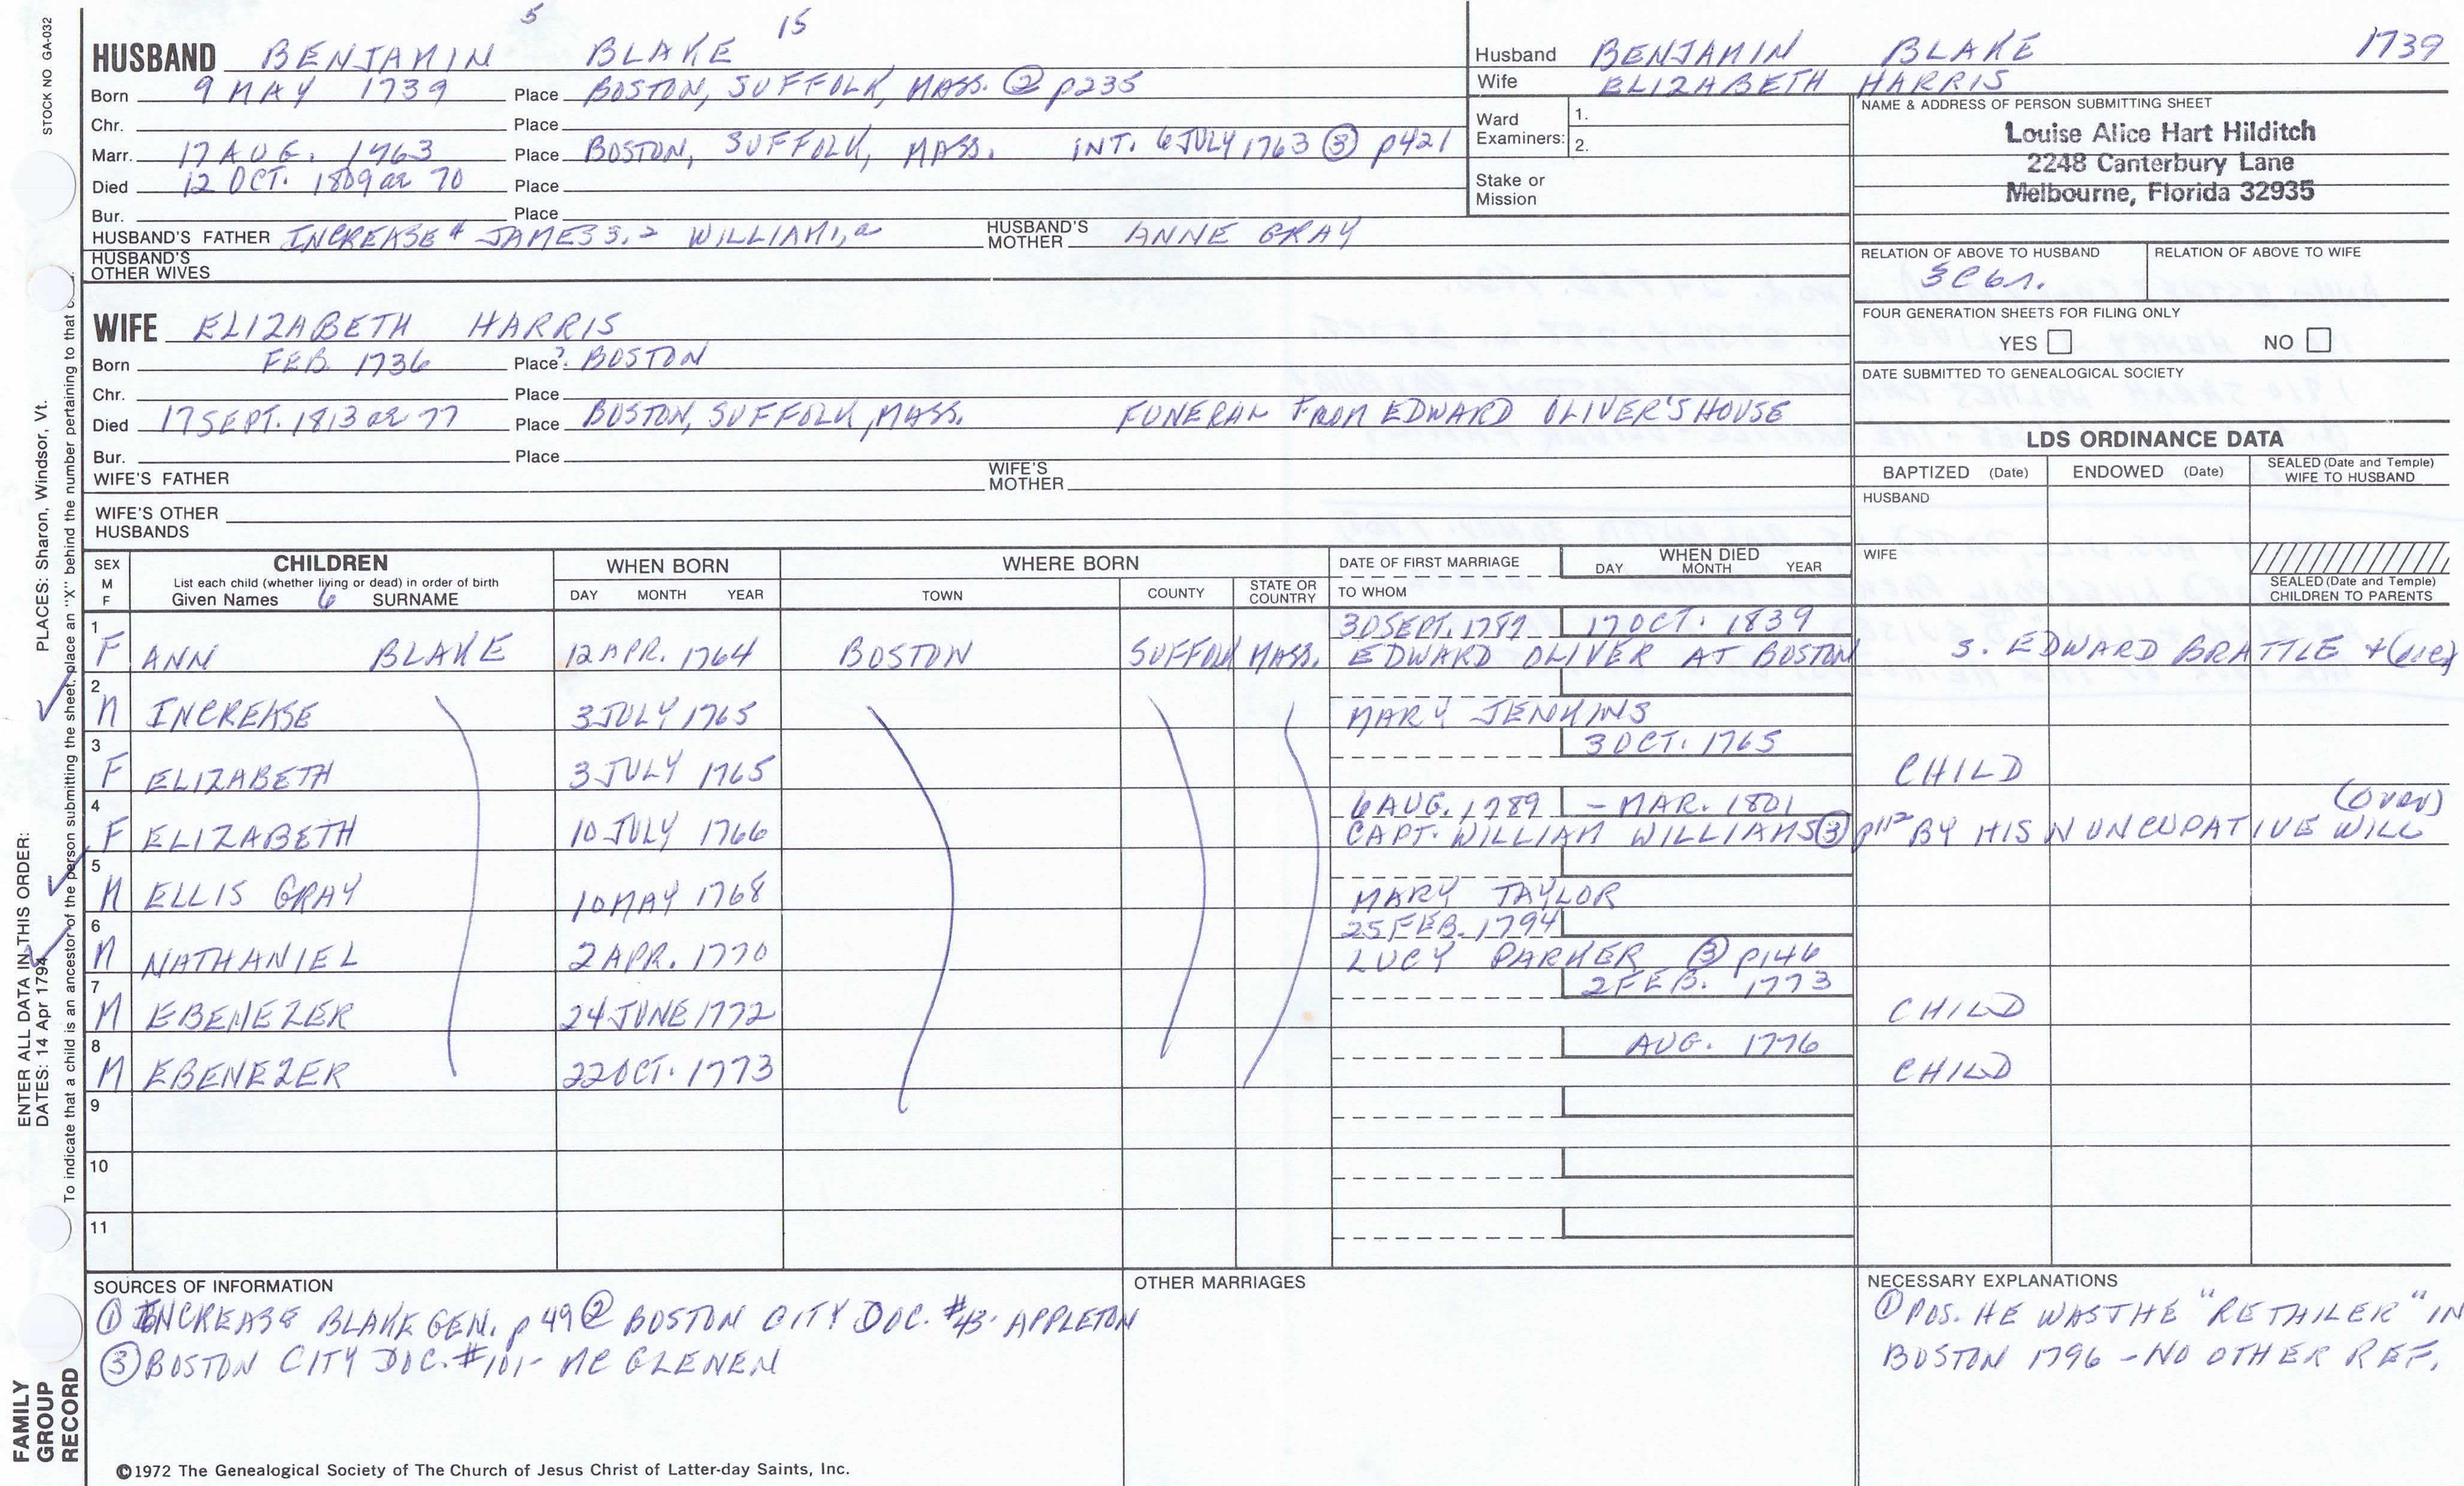 5 15
HUSBAND BENJAMIN BLAKE
Born 9 MAY 1739 Place BOSTON, SUFFOLK, MASS. ② p235
Chr. Place
Marr. 17 AUG. 1763 Place BOSTON, SUFFOLK, MASS. INT. 6 JULY 1763 ③ p421
Died 12 OCT. 1809 ae 70 Place
Bur. Place
HUSBAND'S FATHER INCREASE 4 JAMES 3, 2 WILLIAM 1, a HUSBAND'S MOTHER ANNE GRAY
HUSBAND'S OTHER WIVES
WIFE ELIZABETH HARRIS
Born FEB. 1736 Place ? BOSTON
Chr. Place
Died 17 SEPT. 1813 ae 77 Place BOSTON, SUFFOLK, MASS. FUNERAL FROM EDWARD OLIVER'S HOUSE
Bur. Place
WIFE'S FATHER WIFE'S MOTHER
WIFE'S OTHER HUSBANDS
Husband BENJAMIN BLAKE 1739
Wife ELIZABETH HARRIS
Ward Examiners: 1.
2.
Stake or Mission
NAME & ADDRESS OF PERSON SUBMITTING SHEET
Louise Alice Hart Hilditch
2248 Canterbury Lane
Melbourne, Florida 32935
RELATION OF ABOVE TO HUSBAND RELATION OF ABOVE TO WIFE
FOUR GENERATION SHEETS FOR FILING ONLY
YES NO
DATE SUBMITTED TO GENEALOGICAL SOCIETY
LDS ORDINANCE DATA
BAPTIZED (Date) ENDOWED (Date) SEALED (Date and Temple) WIFE TO HUSBAND
HUSBAND
WIFE
SEALED (Date and Temple) CHILDREN TO PARENTS
SEX M F CHILDREN WHEN BORN WHERE BORN DATE OF FIRST MARRIAGE WHEN DIED
List each child (whether living or dead) in order of birth
Given Names 6 SURNAME DAY MONTH YEAR TOWN COUNTY STATE OR COUNTRY TO WHOM DAY MONTH YEAR
1 30 SEPT. 1787 17 OCT. 1839
F ANN BLAKE 12 APR. 1764 BOSTON SUFFOLK MASS. EDWARD OLIVER AT BOSTON S. EDWARD BRATTLE +
2
M INCREASE 3 JULY 1765 MARY JENKINS
3 3 OCT. 1765
F ELIZABETH 3 JULY 1765 CHILD
4 6 AUG. 1789 - MAR. 1801 (OVER)
F ELIZABETH 10 JULY 1766 CAPT. WILLIAM WILLIAMS ③ p112 BY HIS NUNCUPATIVE WILL
5
M ELLIS GRAY 10 MAY 1768 MARY TAYLOR
6 25 FEB. 1794
M NATHANIEL 2 APR. 1770 LUCY PARKER ③ p146
7 2 FEB. 1773
M EBENEZER 24 JUNE 1772 CHILD
8 AUG. 1776
M EBENEZER 22 OCT. 1773 CHILD
9
10
11
SOURCES OF INFORMATION
① INCREASE BLAKE GEN. p 49 ② BOSTON CITY DOC. #43- APPLETON
③ BOSTON CITY DOC. #101- MC GLENEN
OTHER MARRIAGES
NECESSARY EXPLANATIONS
① POS. HE WAS THE "RETAILER" IN
BOSTON 1796 - NO OTHER REF.
©1972 The Genealogical Society of The Church of Jesus Christ of Latter-day Saints, Inc.
STOCK NO GA-032
PLACES: Sharon, Windsor, Vt.
ENTER ALL DATA IN THIS ORDER:
DATES: 14 Apr 1794
To indicate that a child is an ancestor of the person submitting the sheet, place an "X" behind the number pertaining to that
FAMILY
GROUP
RECORD